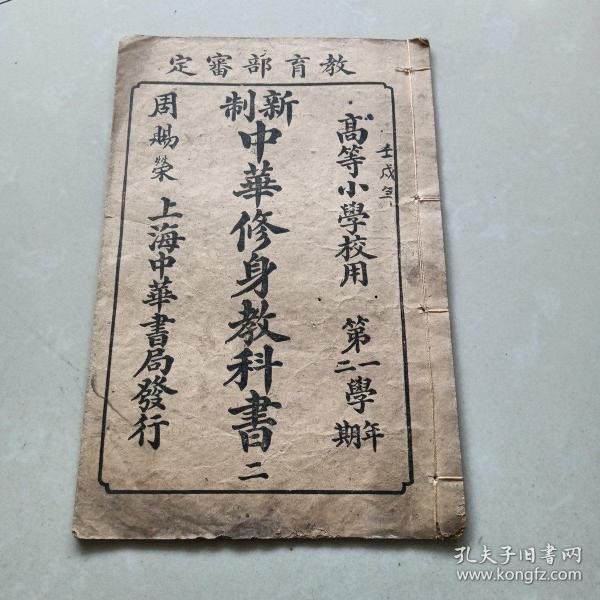 教育部審定
高等小學校用 第一二學年期
壬戌年
新制
中華修身教科書 二
周賜榮
上海中華書局發行
孔夫子旧书网
www.kongfz.com